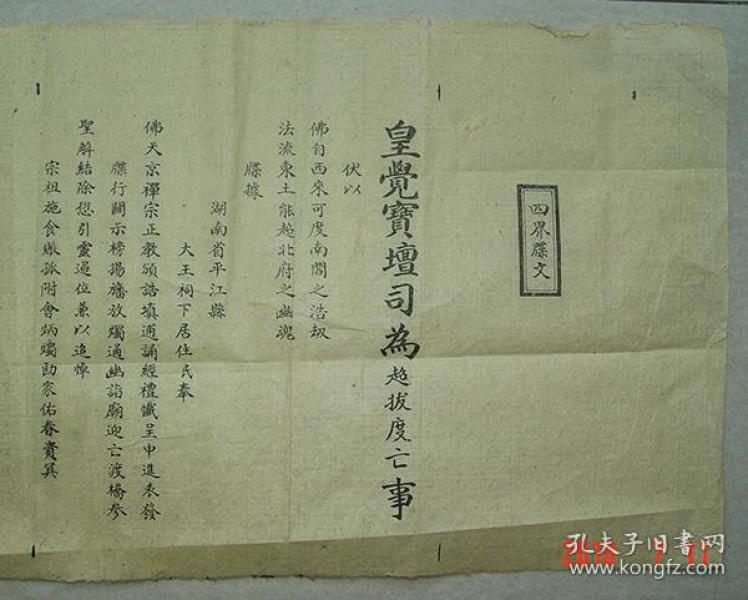 四界牒文
皇覺寶壇司為超拔度亡事
伏以
佛自西來可度南閻之浩劫
法流東土能超北府之幽魂
牒據
湖南省平江縣
大王祠下居住民奉
佛天京禪宗正教頒誥填逋誦經禮懺呈申進表發
牒行關示榜揚旛放燭通幽詣廟迎亡渡橋參
聖解結除愆引靈過位兼以追悼
宗祖施食賑孤附會炳燭勛家佑春賞巽
孔夫子旧书网
www.kongfz.com